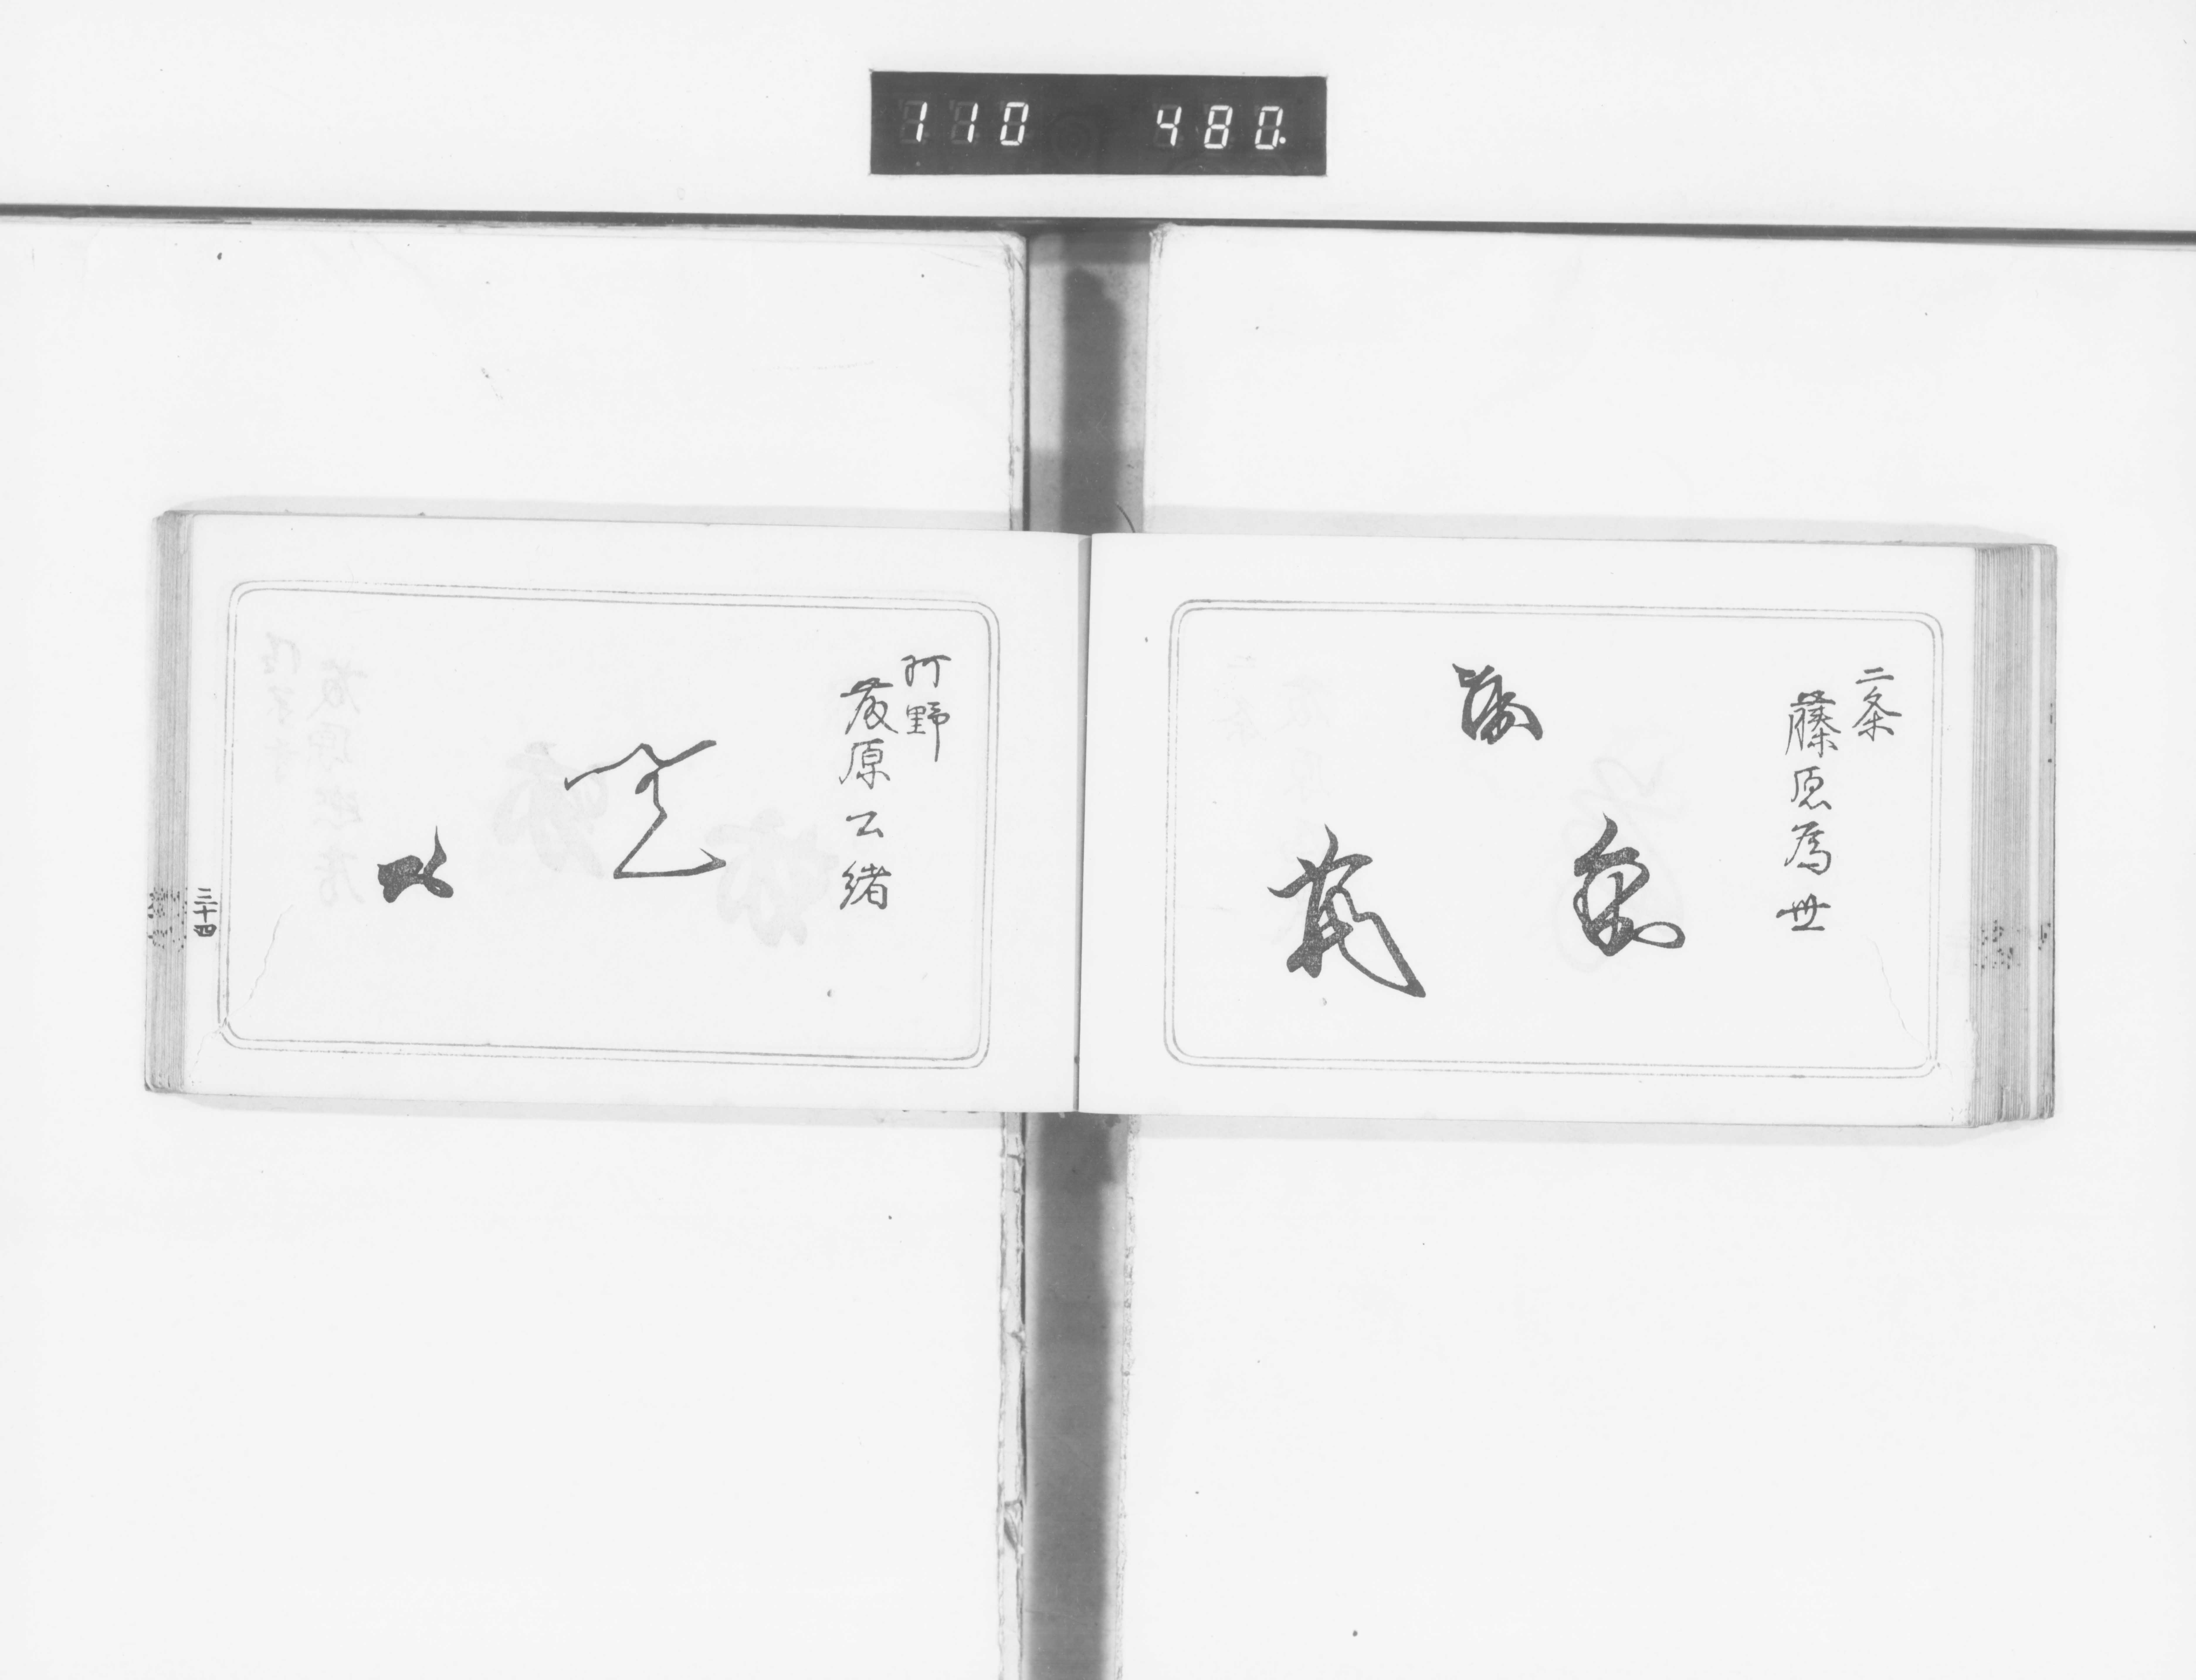 110 480.
二条
藤原為世
阿野
藤原公緒
三十四